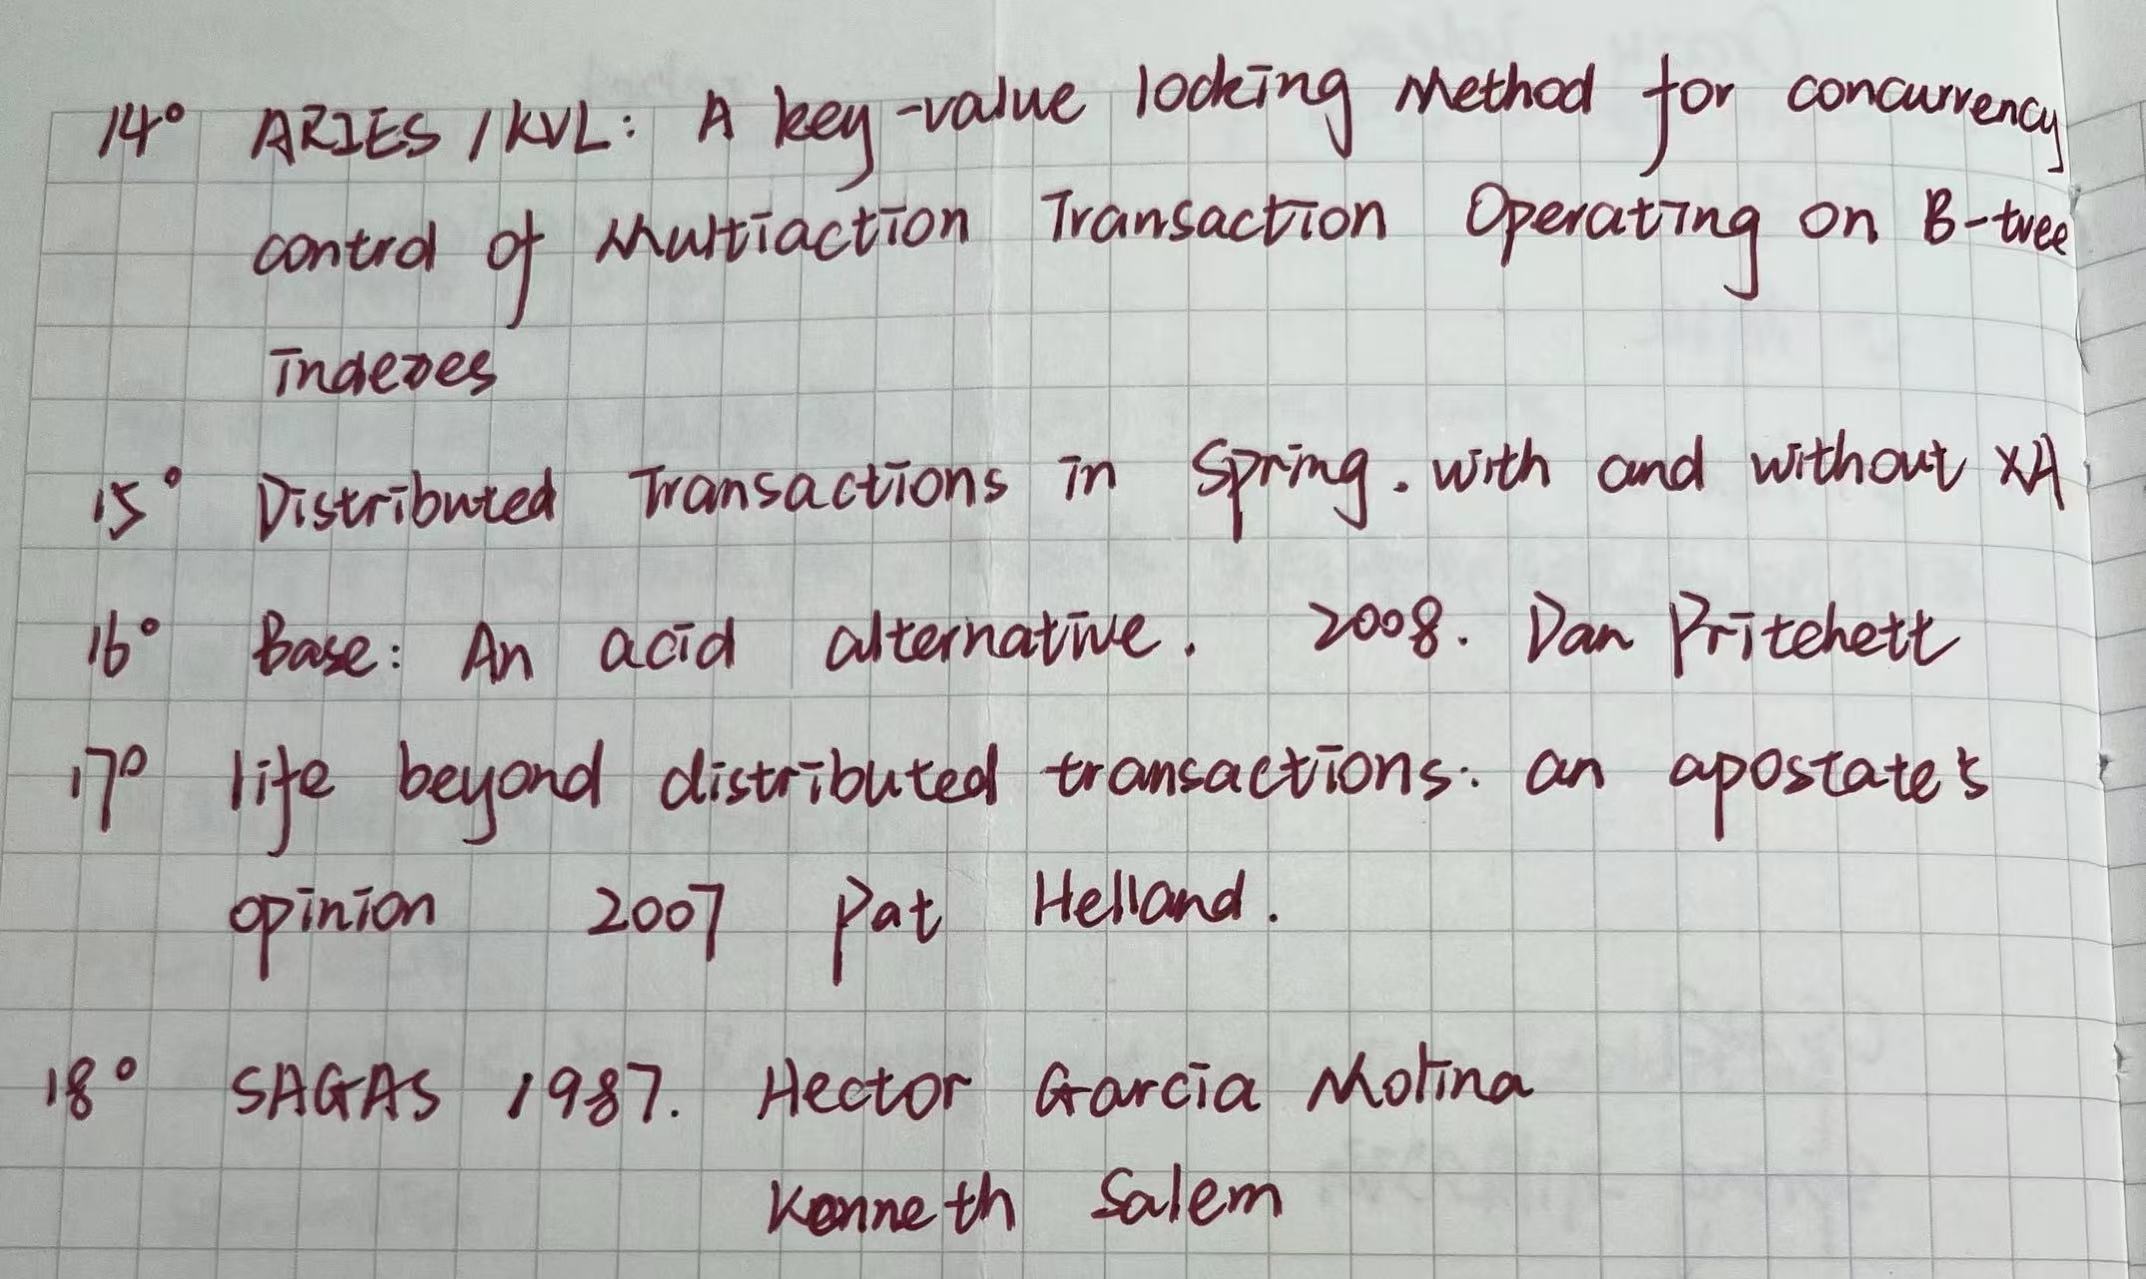 14° ARIES / KVL: A key-value locking Method for concurrency
control of Multiaction Transaction Operating on B-tree
indexes
15° Distributed Transactions in Spring. with and without XA
16° Base: An acid alternative. 2008. Dan Pritchett
17° life beyond distributed transactions: an apostate's
opinion 2007 Pat Helland.
18° SAGAS 1987. Hector Garcia Molina
Kenneth Salem